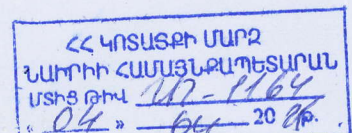 ՀՀ ԿՈՏԱՅՔԻ ՄԱՐԶ
ՆԱԻՐԻԻ ՀԱՄԱՅՆՔԱՊԵՏԱՐԱՆ
ՄՏԻՑ ԹԻՎ ՄՊ-1164
« 04 » 04 20 26թ.